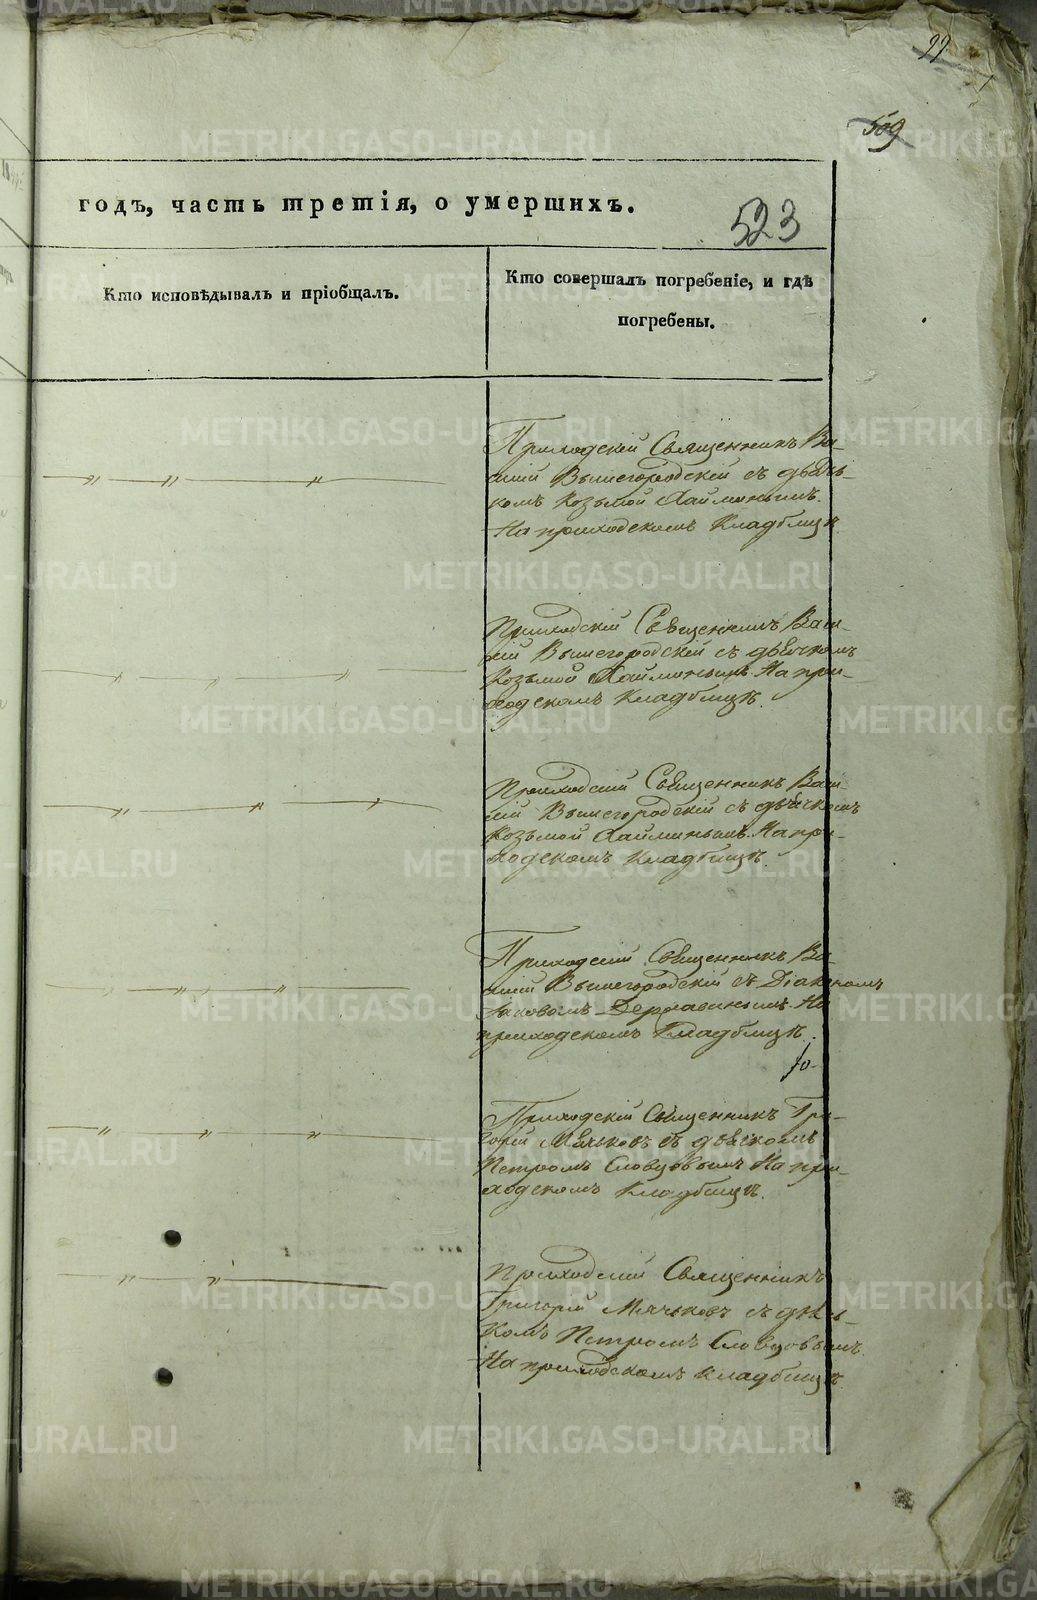 99
509
годъ, часть третія, о умершихъ.
523
Кто исповѣдывалъ и пріобщалъ.
Кто совершалъ погребеніе, и гдѣ
погребены.
Приходскій Священникъ Ва-
силій Вышегородскій съ дьяч-
комъ Козьмой Хайминымъ.
На приходскомъ Кладбищѣ
Приходскій Священникъ Васи-
лій Вышегородскій съ дьячкомъ
Козьмой Хайминымъ. На при-
ходскомъ Кладбищѣ.
Приходскій Священникъ Васи-
лій Вышегородскій съ дьячкомъ
Козьмой Хайминымъ. На при-
ходскомъ Кладбищѣ.
Приходскій Священникъ Ва-
силій Вышегородскій съ Діакономъ
Іаковомъ Державинымъ. На
приходскомъ Кладбищѣ.
Приходскій Священникъ Гри-
горій Мячковъ съ дьячкомъ
Петромъ Словцовымъ На при-
ходскомъ Кладбищѣ.
Приходскій Священникъ
Григорій Мячьковъ съ дьяч-
комъ Петромъ Словцовымъ.
На приходскомъ Кладбищѣ.
METRIKI.GASO-URAL.RU